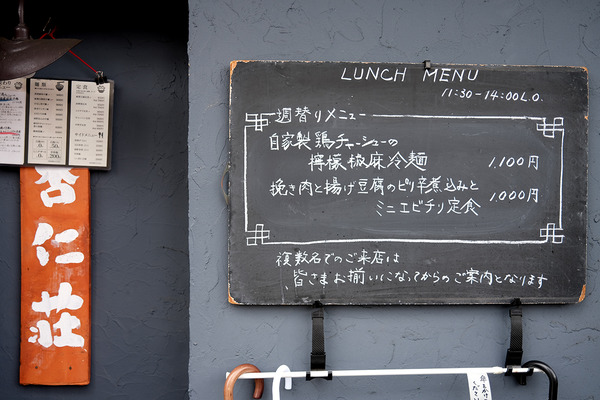 LUNCH MENU
11:30-14:00 L.O.
週替りメニュー
自家製鶏チャーシューの
檸檬椒麻冷麺 1,100円
挽き肉と揚げ豆腐のピリ辛煮込みと
ミニエビチリ定食 1,000円
複数名でのご来店は
皆さまお揃いになってからのご案内となります
杏仁荘
定食
サイドメニュー